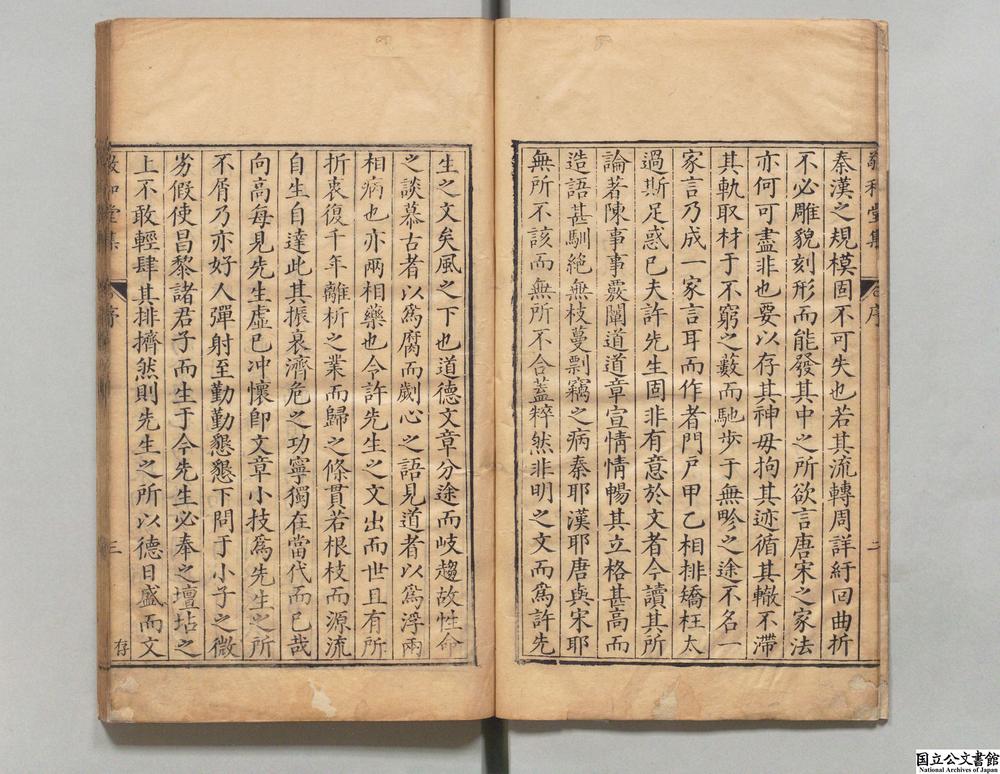 敬和堂集
序
二
秦漢之規模固不可失也若其流轉周詳紆回曲折
不必雕貌刻形而能發其中之所欲言唐宋之家法
亦何可盡非也要以存其神毋拘其迹循其轍不滯
其軌取材于不窮之藪而馳步于無畛之途不名一
家言乃成一家言耳而作者門戸甲乙相排矯枉太
過斯足惑已夫許先生固非有意於文者今讀其所
論著陳事事覈闡道道章宣情情暢其立格甚高而
造語甚馴絕無枝蔓剽竊之病秦耶漢耶唐與宋耶
無所不該而無所不合蓋粹然非明之文而為許先
生之文矣風之下也道德文章分途而岐趨故性命
之談慕古者以為腐而劌心之語見道者以為浮兩
相病也亦兩相藥也今許先生之文出而世且有所
折衷復千年離析之業而歸之條貫若根枝而源流
自生自達此其振衰濟危之功寧獨在當代而已哉
向高每見先生虛已冲懷卽文章小技為先生之所
不屑乃亦好人彈射至勤勤懇懇下問于小子之微
劣假使昌黎諸君子而生于今先生必奉之壇坫之
上不敢輕肆其排擠然則先生之所以德日盛而文
敬和堂集
序
三
存
国立公文書館
National Archives of Japan